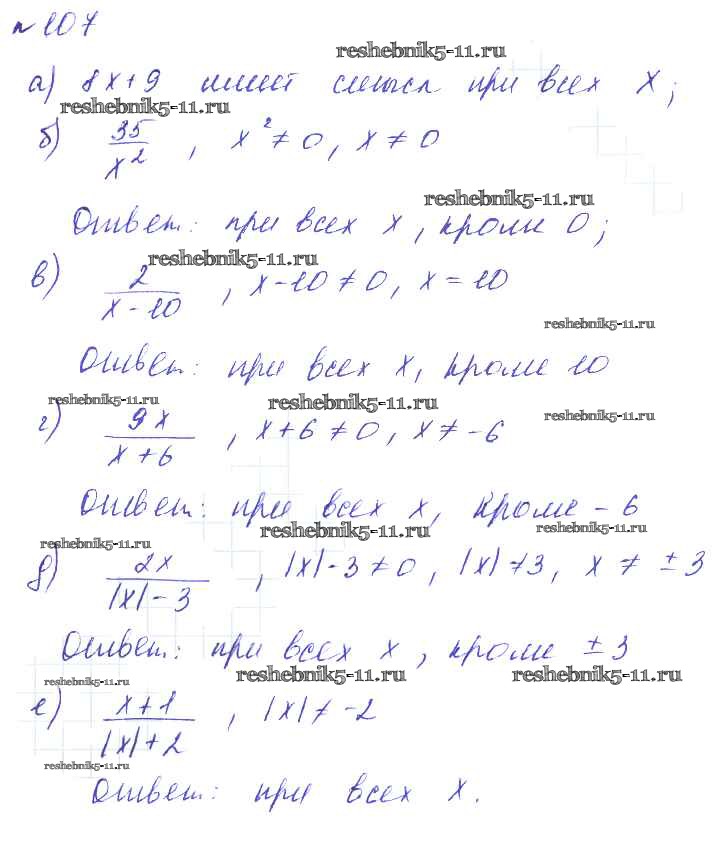 №107
reshebnik5-11.ru
а) 8x+9 имеет смысл при всех x;
reshebnik5-11.ru
б) 35/x², x²≠0, x≠0
reshebnik5-11.ru
Ответ: при всех x, кроме 0;
reshebnik5-11.ru
в) 2/(x-10), x-10≠0, x=10
reshebnik5-11.ru
Ответ: при всех x, кроме 10
reshebnik5-11.ru reshebnik5-11.ru reshebnik5-11.ru
г) 9x/(x+6), x+6≠0, x≠-6
Ответ: при всех x, кроме -6
reshebnik5-11.ru reshebnik5-11.ru reshebnik5-11.ru
д) 2x/(|x|-3), |x|-3≠0, |x|≠3, x≠±3
Ответ: при всех x, кроме ±3
reshebnik5-11.ru reshebnik5-11.ru reshebnik5-11.ru
е) (x+1)/(|x|+2), |x|≠-2
reshebnik5-11.ru
Ответ: при всех x.